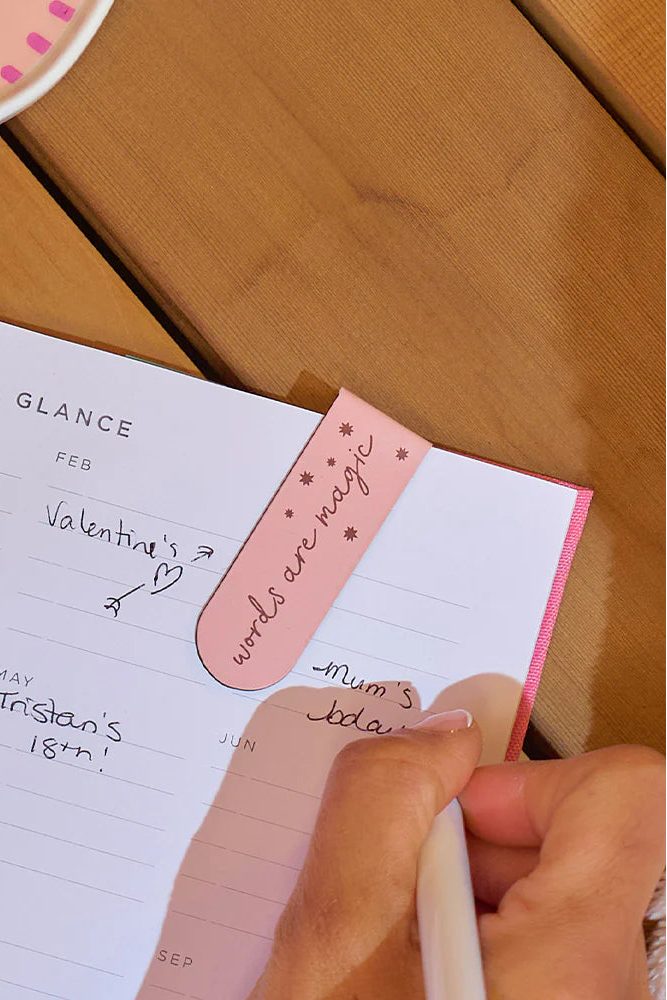 GLANCE
FEB
Valentine's
words are magic
MAY
Tristan's
18th!
Mum's
JUN
SEP